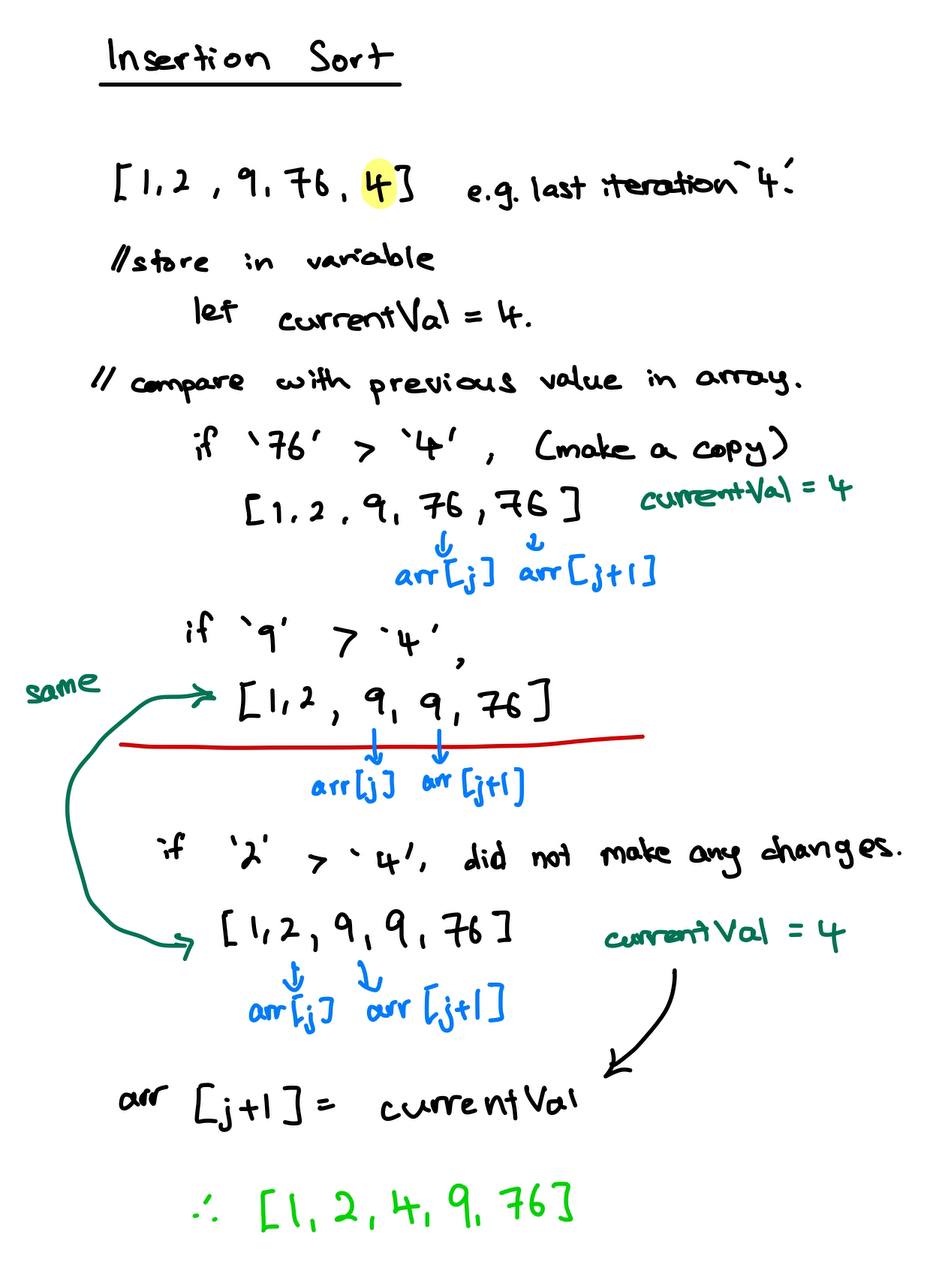 Insertion Sort
[1, 2, 9, 76, 4] e.g. last iteration `4'.
//store in variable
let currentVal = 4.
// compare with previous value in array.
if `76' > `4', (make a copy)
[1, 2, 9, 76, 76] currentVal = 4
arr[j] arr[j+1]
if `9' > `4',
same
[1, 2, 9, 9, 76]
arr[j] arr[j+1]
if `2' > `4', did not make any changes.
[1, 2, 9, 9, 76] currentVal = 4
arr[j] arr[j+1]
arr [j+1] = currentVal
∴ [1, 2, 4, 9, 76]